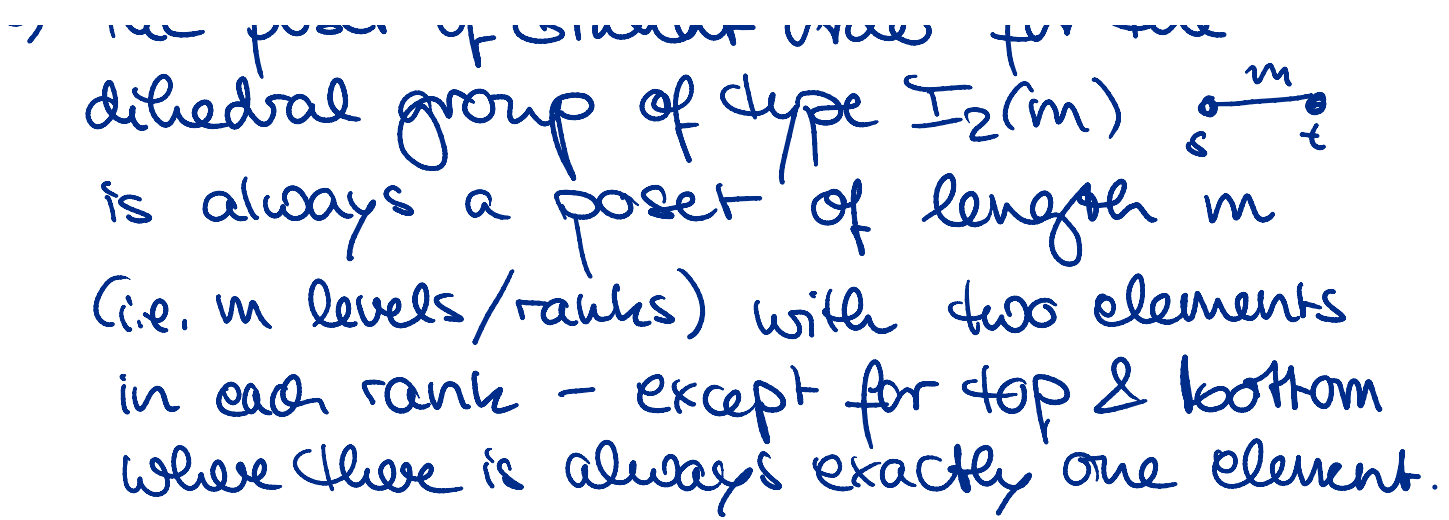 dihedral group of type I₂(m) s m t
is always a poset of length m
(i.e. m levels/ranks) with two elements
in each rank - except for top & bottom
where there is always exactly one element.